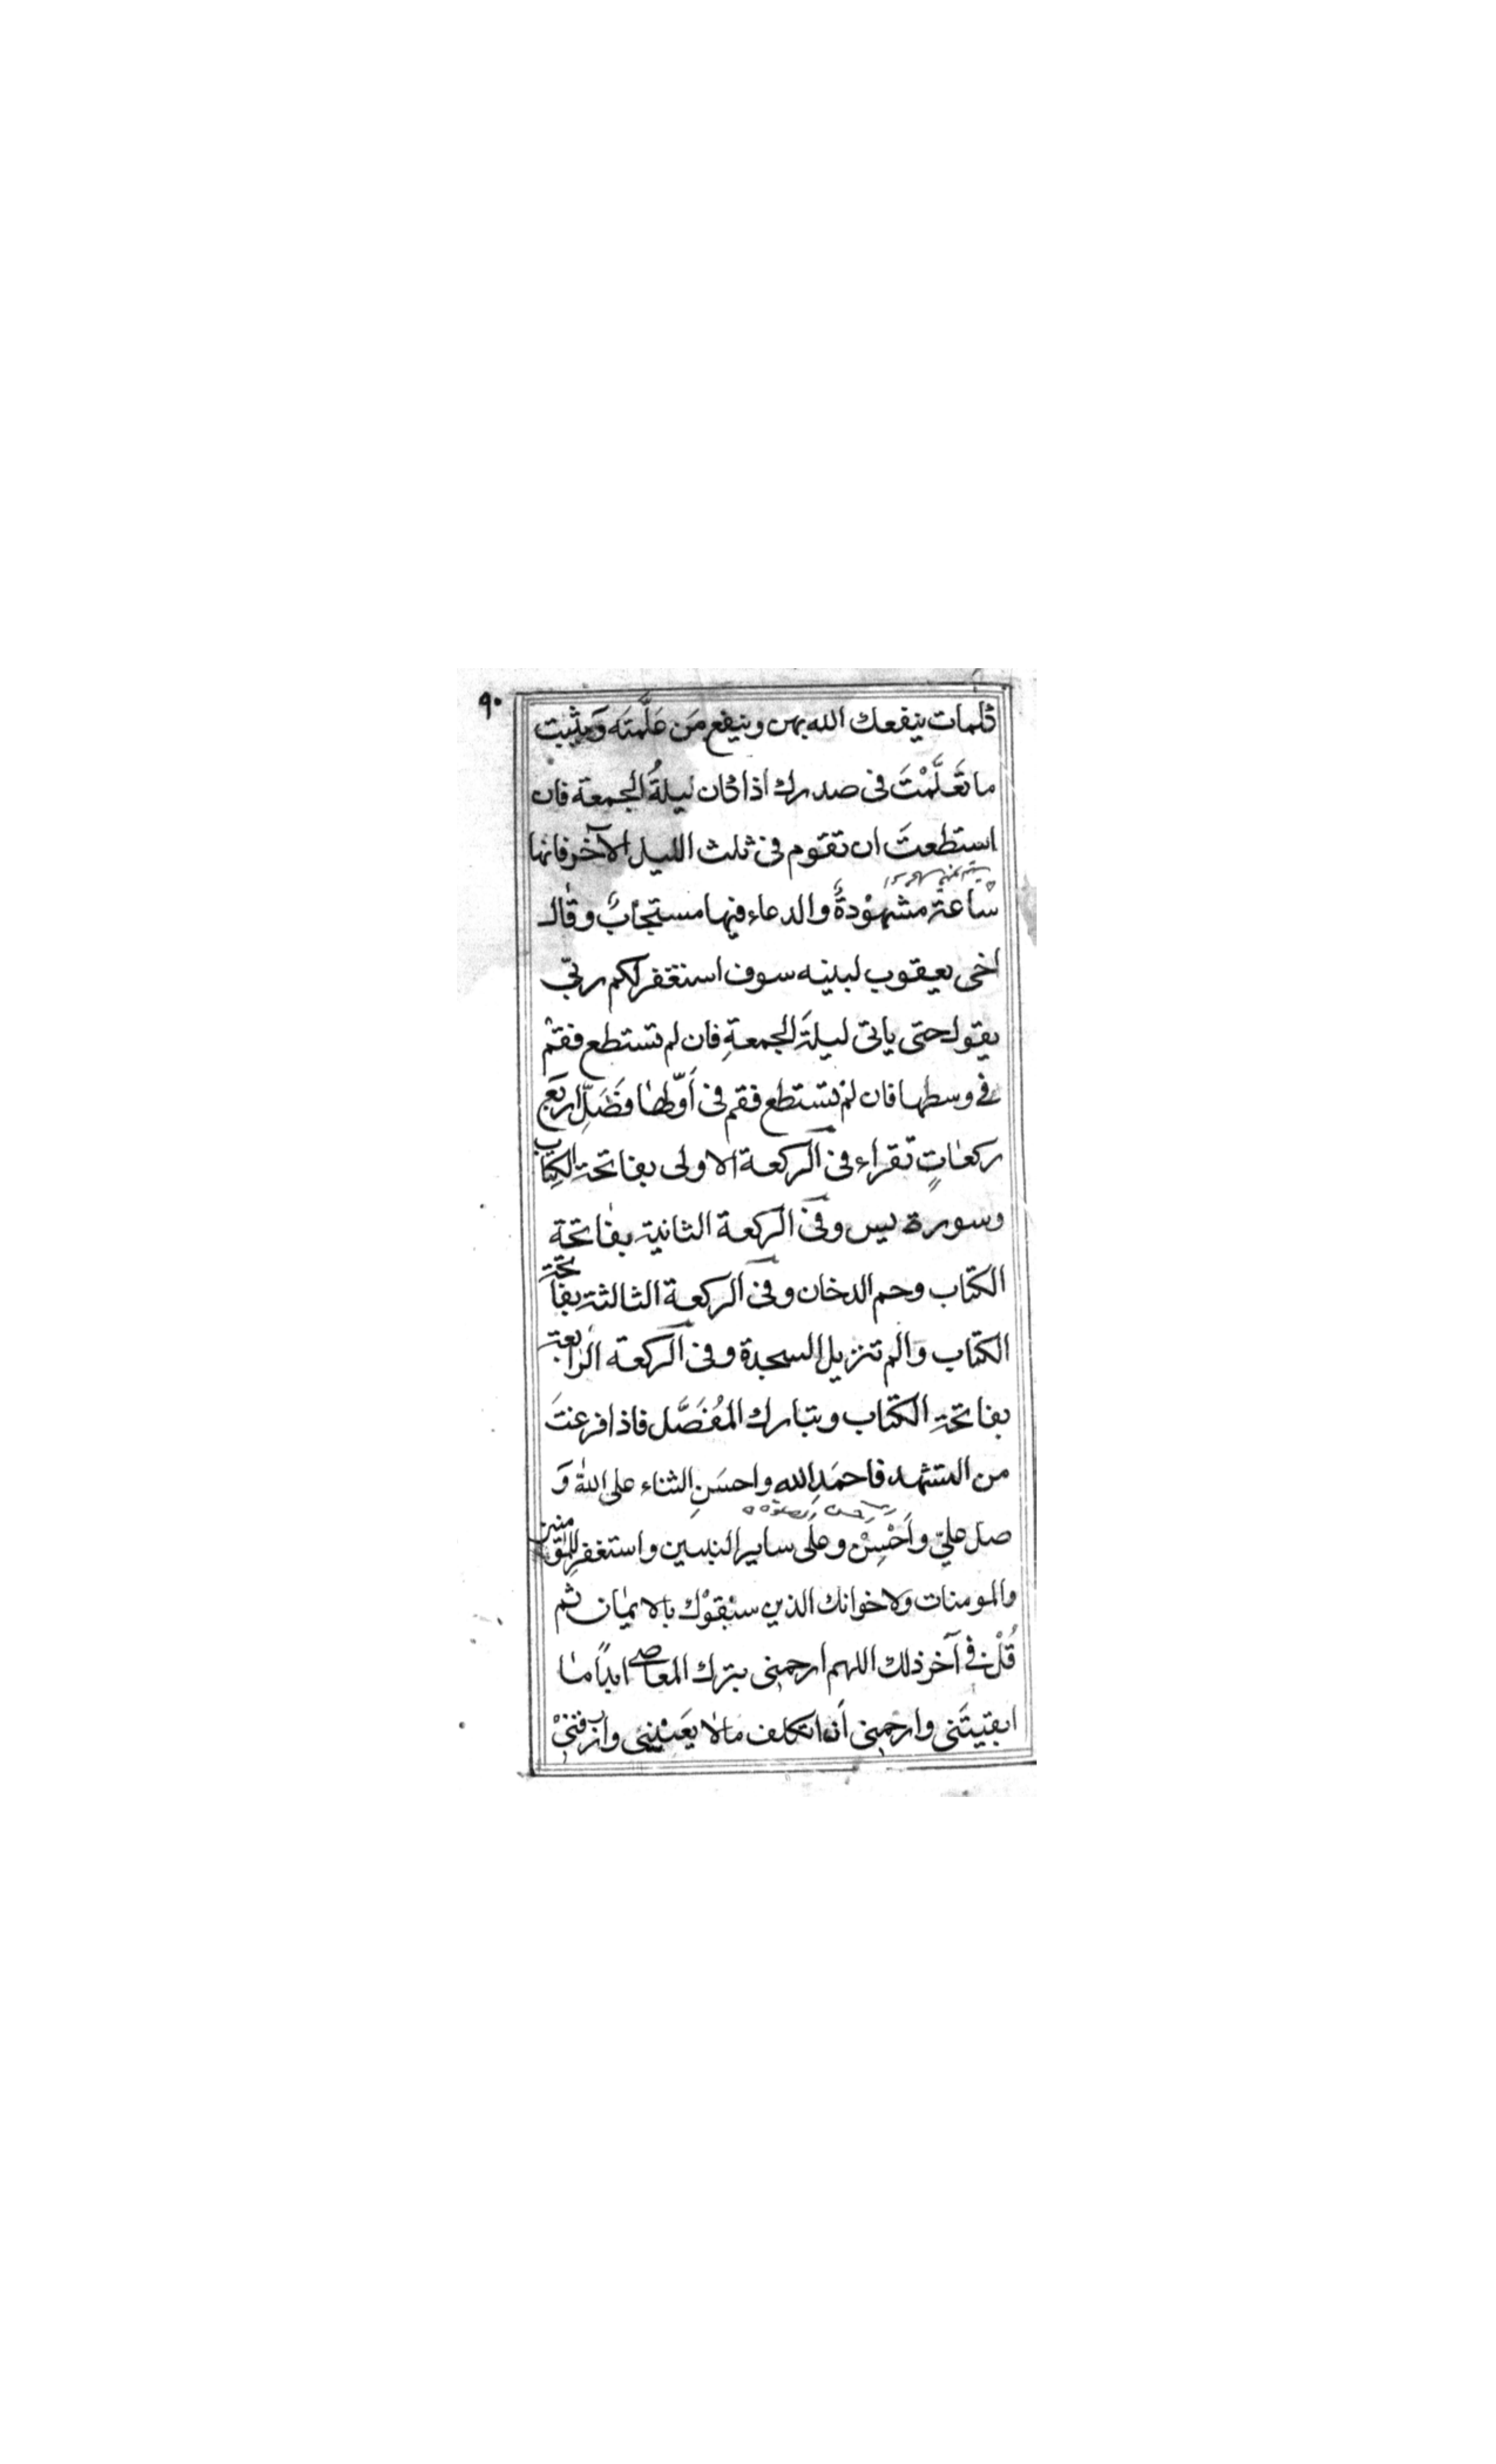 ٩٠
كلمات ينفعك الله بهن وينفع مَن عَلَّمتَه وَيثبت
ما تَعَلَّمْتَ فى صدرك اذا كان ليلةُ الجمعة فان
استطعتَ ان تقوم فى ثلث الليل الآخر فانها
ساعة مشهُوْدةٌ والدعاء فيها مستجابٌ وقال
اخى يعقوب لبنيه سوف استغفر لكم ربّى
يقول حتى ياتى ليلةَ الجمعةِ فان لم تستطع فقمْ
فى وسطها فان لمْ تستطع فقم فى اَوّلها فَصَلِّ اربَع
ركعاتٍ تقراء فى الركعة الاولى بفاتحةِ الكِتاب
وسورة يس وفى الركعة الثانية بفاتحة
الكتاب وحم الدخان وفى الركعة الثالثة بفاتحة
الكتاب والم تنزيل السجدة وفى الركعة الرابعة
بفاتحةِ الكتاب وتبارك المُفَصَّل فاذا فرغتَ
من التشهد فاحمَدِ الله واحسَنِ الثناء على الله وَ
صل علىّ واَحْسِنْ وعلَى ساير النبيين واستغفر للمؤمنين
والمومنات ولاخوانك الذين سبقوْك بالايمان ثم
قُلْ فى آخر ذلك اللهم ارحمنى بترك المعاصى ابداً ما
ابقيتَنى وارحمنى اَن اتكلف مالا يَعنْينى وارزقنىْ